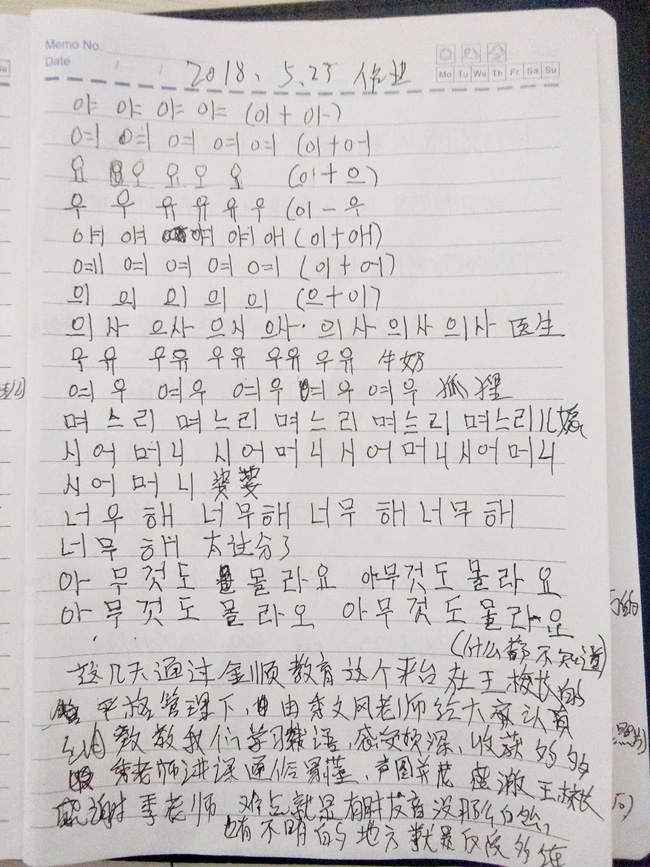 Memo No.
Date
Mo Tu We Th Fr Sa Su
2018、5.25 作业
야 야 야 야 (이+아)
여 여 여 여 여 (이+어
요 요 요 요 (이+으)
우 우 유 유 유 우 (이-우
얘 얘 얘 얘 애 (이+애)
예 예 예 예 예 (이+에)
의 의 의 의 의 (으+이)
의사 으사 으시 의사. 의사 의사 의사 医生
우유 우유 우유 우유 우유 牛奶
여우 여우 여우 여우 여우 狐狸
며느리 며느리 며느리 며느리 며느리 儿媳
시어머니 시어머니 시어머니 시어머니
시어머니 婆婆
너무해 너무해 너무해 너무해
너무해 太过分了
아무것도 몰라요 아무것도 몰라요
아무것도 몰라오 아무것도 몰라요
(什么都不知道)
这几天通过金顺教育这个平台 在王校长的
严格管理下,由季文风老师给大家认真
教我们学习韩语,感受颇深,收获多多
季老师讲课通俗易懂,声图并茂 感激王校长
感谢季老师 难点就是有时发音没那么自然,
有不明白的地方就是反反复复